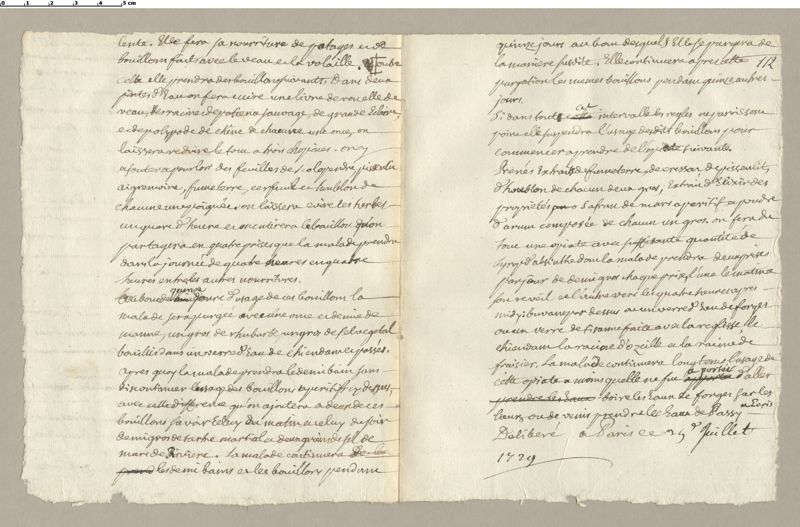 0 1 2 3 4 5 cm
lente. Elle fera sa nourriture de potages et de
bouillon faits avec le veau et la volaille. outre
cela elle prendra des bouillons suivants. Dans deux
pintes d'Eau on fera cuire une livre de rouelle de
veau, de racine de patience sauvage, de grande
et de polypode de chêne de chacune une once, on
laissera reduire le tout a trois chopines. on y
ajoutera pour lors des feuilles de scolopendre, pissenlit
aigremoine, fumeterre, cerfeuil et houblon de
chacune une poignée. on laissera cuire les herbes
un quart d'heure et on retirera le bouillon qu'on
partagera en quatre prises que la malade prendra
dans la journée de quatre heures en quatre
heures entre les autres nourritures.
Au bout de quinze jours d'usage de ces bouillons la
malade sera purgée avec une once et demie de
manne, un gros de rhubarbe un gros de sel vegetal
bouillis dans un verre d'Eau de chiendent et passés.
apres quoy la malade prendra le demi bain sans
discontinuer l'usage des bouillons aperitifs cy dessus,
avec cette difference qu'on ajoutera a deux de ces
bouillons savoir celuy du matin et celuy du soir
demi gros de tartre martial et deux grains de sel de
mars de Riviere. la malade continuera
les demi bains et les bouillons pendant
112
quinze jours au bout desquels Elle se purgera de
la maniere susdite. Elle continuera apres cette
purgation les memes bouillons pendant quinze autres
jours.
Si dans tout cet intervalle les regles ne paroissent
point elle suspendra l'usage desdits bouillons pour
commencer a prendre de l'opiate suivante.
Prenés Extraits de fumeterre, de cresson, de pissenlit,
d'houblon de chacun deux gros, Extrait d'Elixir des
proprietés Safran de mars aperitif et poudre
d'arum composée de chacun un gros. on fera du
tout une opiate avec suffisante quantité de
syrop d'absinthe dont la malade prendra deux prises
par jour de demi gros chaque prise l'une le matin a
son reveil et l'autre vers les quatre heures apres
midy, buvant par dessus un verre d'Eau de forges
ou un verre de tisanne faite avec la reglisse le
chiendent la racine d'ozeille et la racine de
fraisier. la malade continuera longtems l'usage de
cette opiate a moins quelle ne fut a portée d'aller
prendre les eaux boire les Eaux de forges sur les
lieux, ou de venir prendre les Eaux de Passy
a Paris
Deliberé a Paris ce 25 Juillet
1729